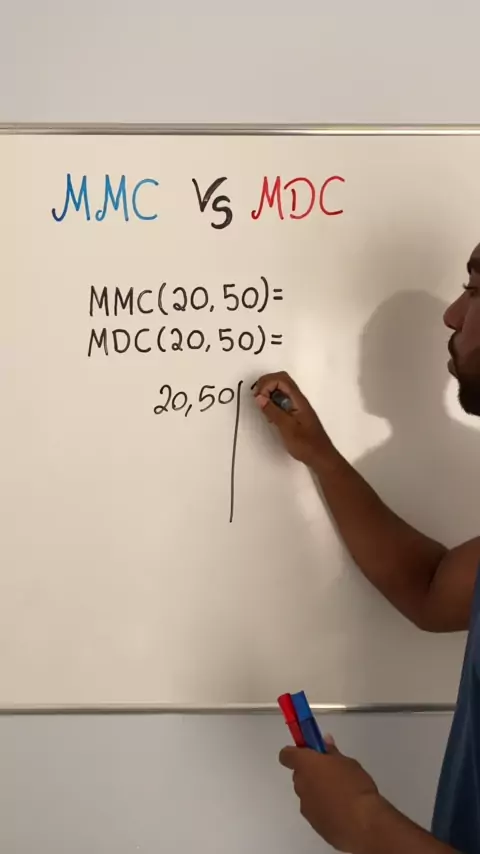 MMC VS MDC
MMC(20,50)=
MDC(20,50)=
20,50